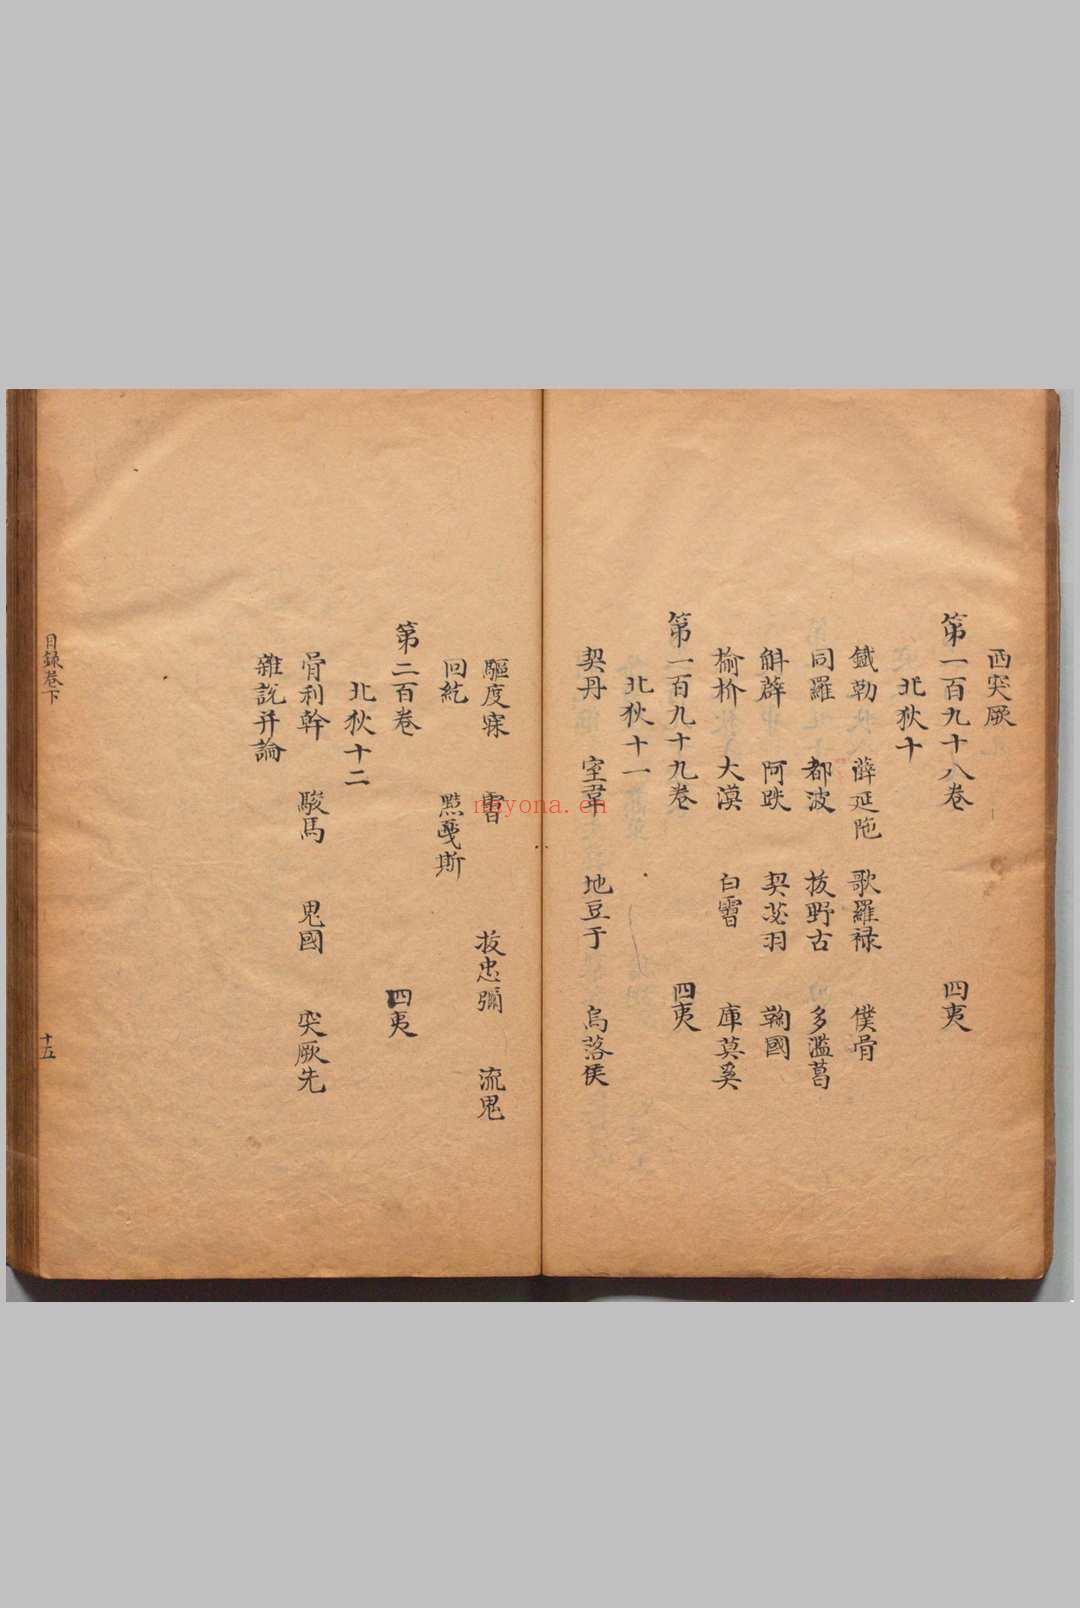 西突厥
第一百九十八卷 四夷
北狄十
鐵勒 薛延陁 歌羅禄 僕骨
同羅 都波 拔野古 多濫葛
斛薜 阿跌 契苾羽 鞠國
榆枌 大漠 白霫 庫莫奚
第一百九十九卷 四夷
北狄十一
契丹 室韋 地豆于 烏落侯
驅度寐 霫 拔忽彌 流鬼
回紇 黠戛斯
第二百卷 四夷
北狄十二
骨利幹 駿馬 鬼國 突厥先
雜說并論
目録卷下
十五
nayona.cn